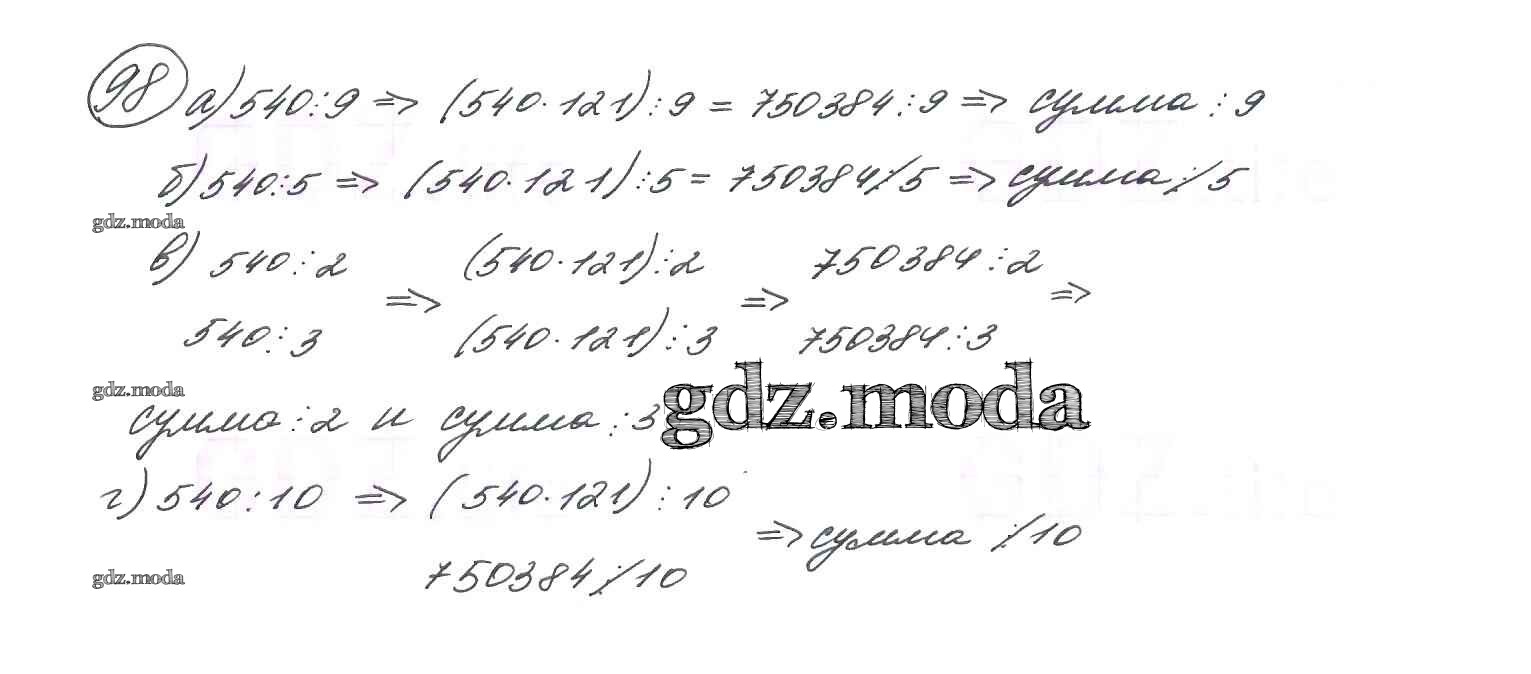 98 а) 540⋮9 => (540·121)⋮9 = 750384⋮9 => сумма⋮9
б) 540⋮5 => (540·121)⋮5 = 750384 ⋮̸ 5 => сумма ⋮̸ 5
gdz.moda
в) 540⋮2 => (540·121)⋮2 => 750384⋮2 =>
540⋮3 (540·121)⋮3 750384⋮3
gdz.moda
сумма⋮2 и сумма⋮3 gdz.moda
г) 540⋮10 => (540·121)⋮10
=> сумма ⋮̸ 10
gdz.moda 750384 ⋮̸ 10